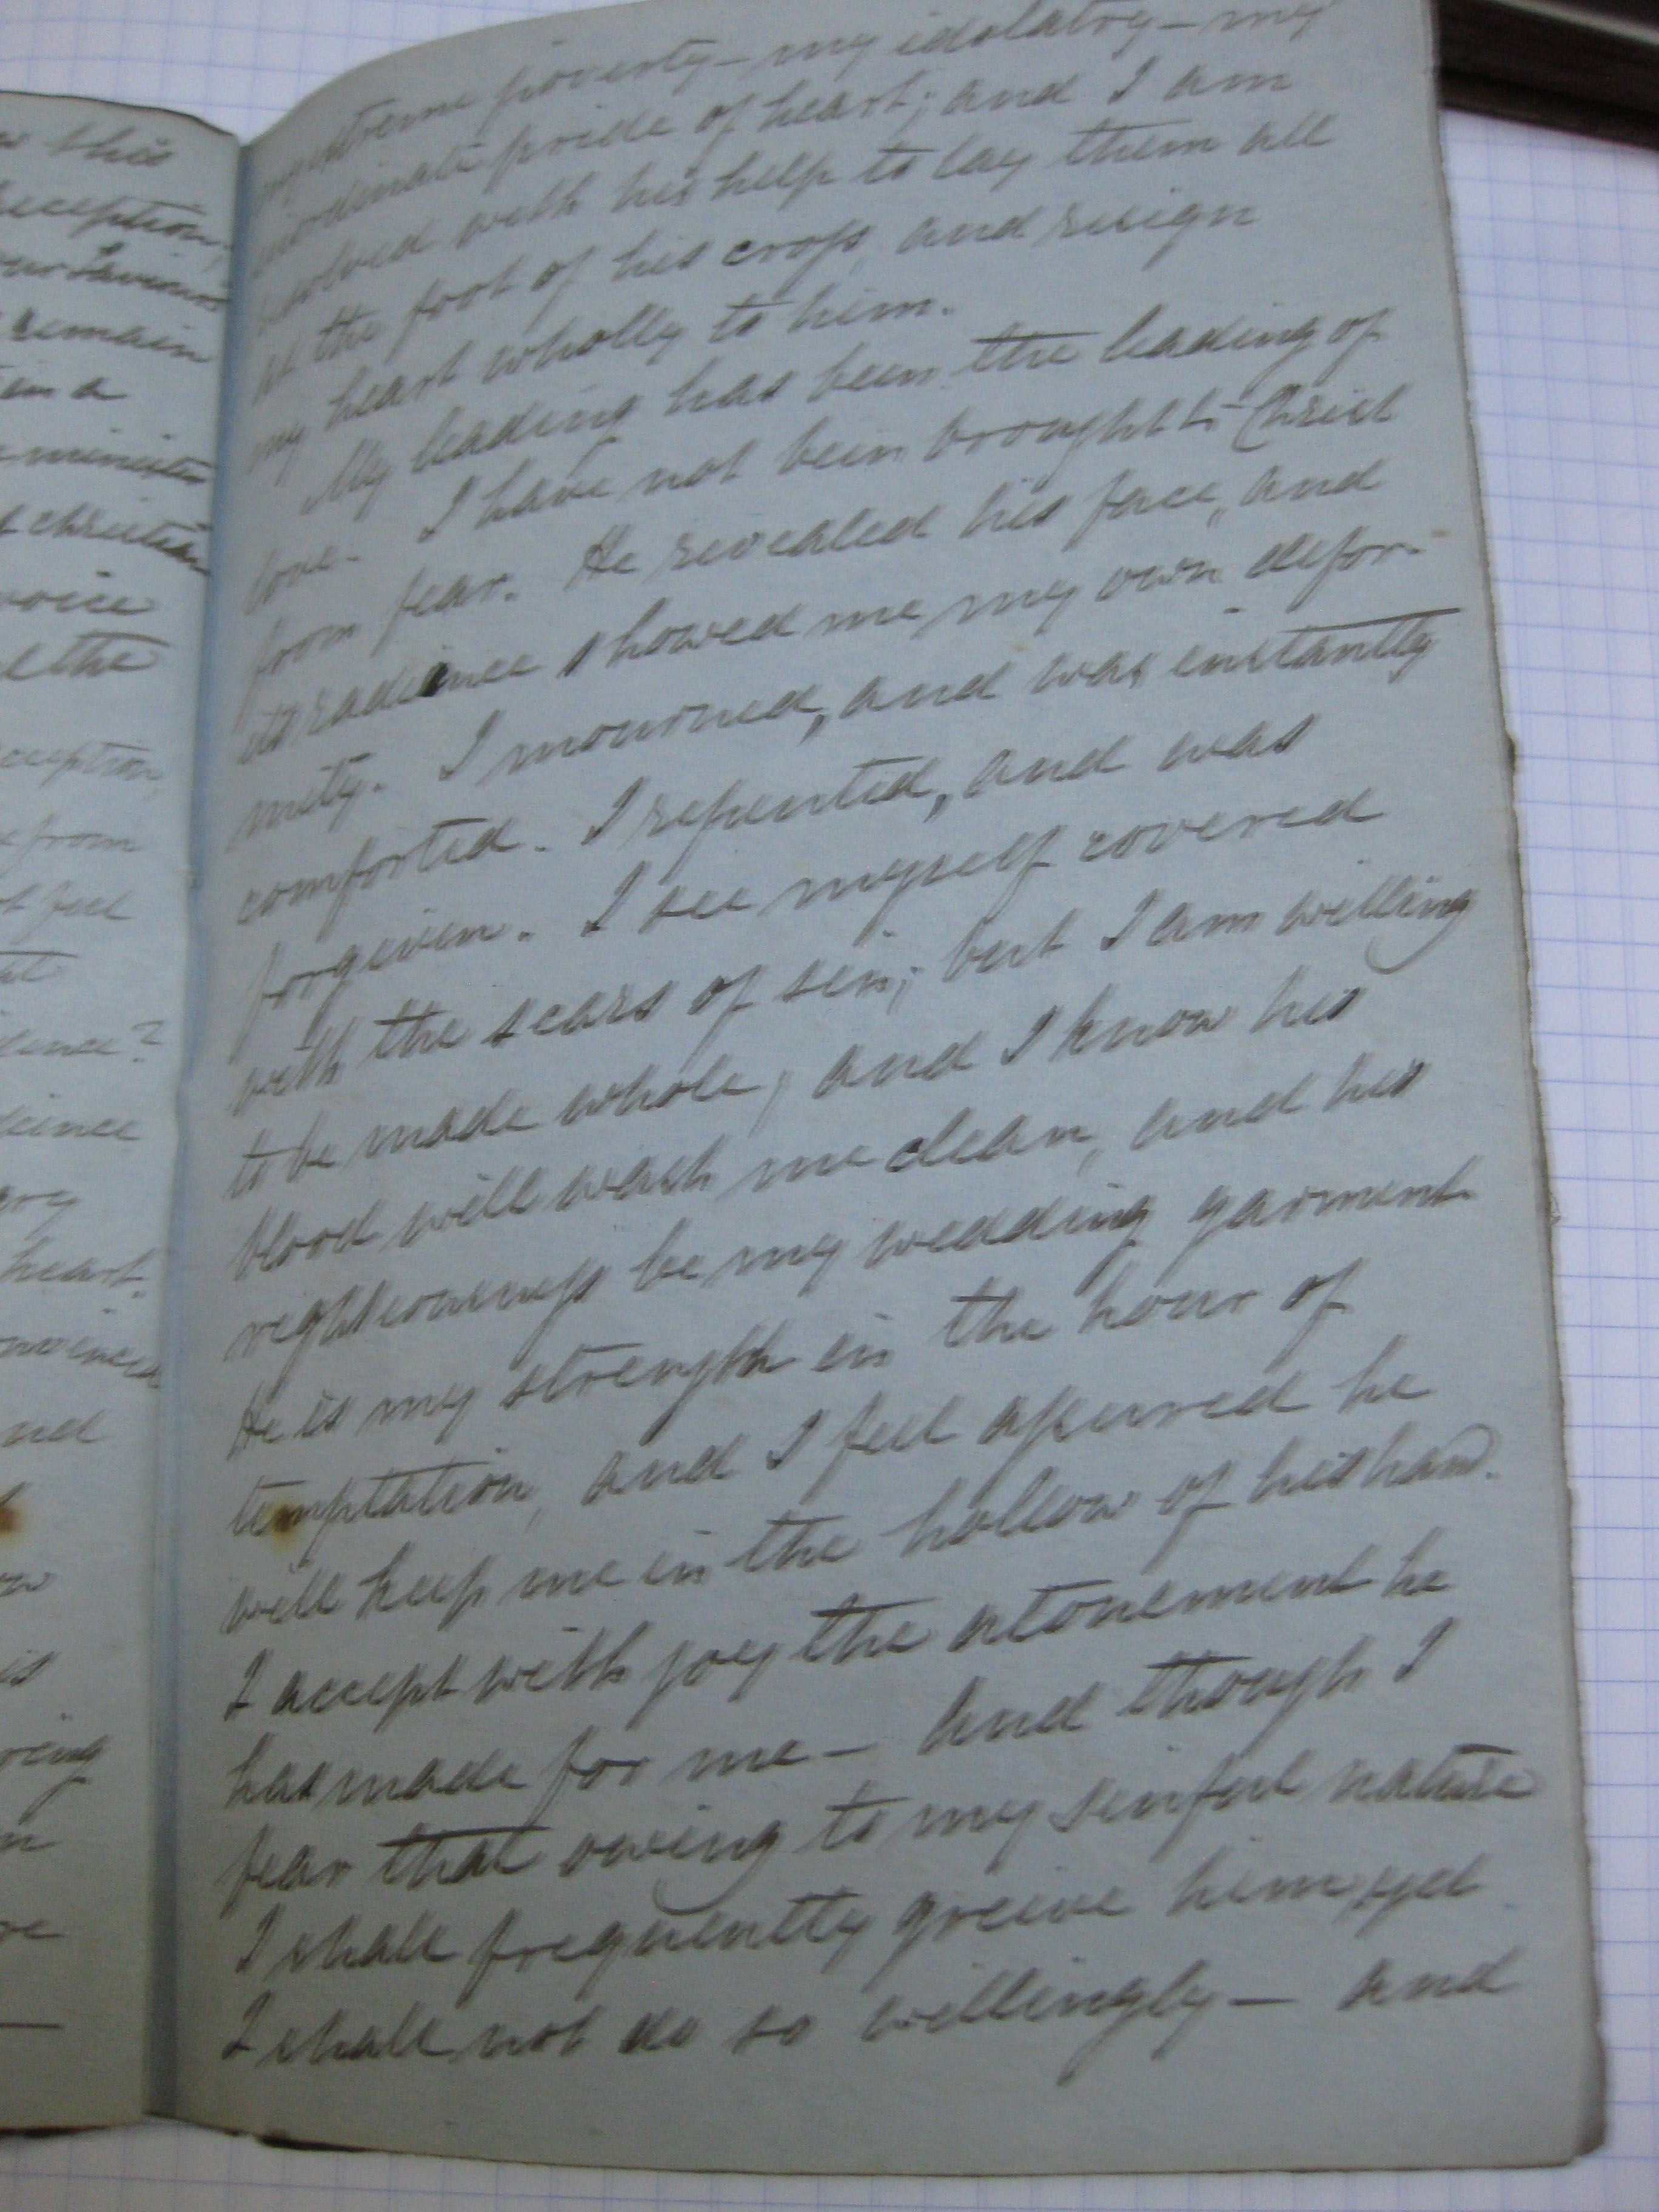 w this
reception,
our Saviour's
remain
am a
minister
christian
voice
the
reception,
from
feel
lience?
dience
ary
heart.
convinced
and
is
ving
my extreme poverty – my idolatry – my
inordinate pride of heart; and I am
resolved with his help to lay them all
at the foot of his cross, and resign
my heart wholly to him.
My leading has been the leading of
love. I have not been brought to Christ
from fear. He revealed his face, and
its radiance showed me my own defor-
mity. I mourned, and was instantly
comforted. I repented, and was
forgiven. I see myself covered
with the scars of sin; but I am willing
to be made whole, and I know his
blood will wash me clean, and his
righteousness be my wedding garment.
He is my strength in the hour of
temptation, and I feel assured he
will keep me in the hollow of his hand.
I accept with joy the atonement he
has made for me – and though I
fear that owing to my sinful nature
I shall frequently greive him, yet
I shall not do so willingly – and